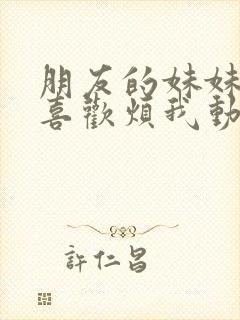 朋友的妹妹
喜歡煩我動
許仁昌